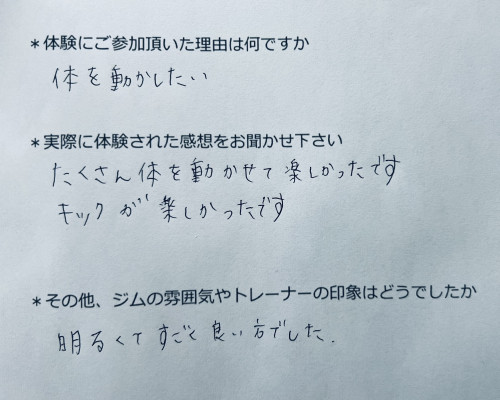 ＊体験にご参加頂いた理由は何ですか
体を動かしたい
＊実際に体験された感想をお聞かせ下さい
たくさん体を動かせて楽しかったです
キックが楽しかったです
＊その他、ジムの雰囲気やトレーナーの印象はどうでしたか
明るくてすごく良い方でした.